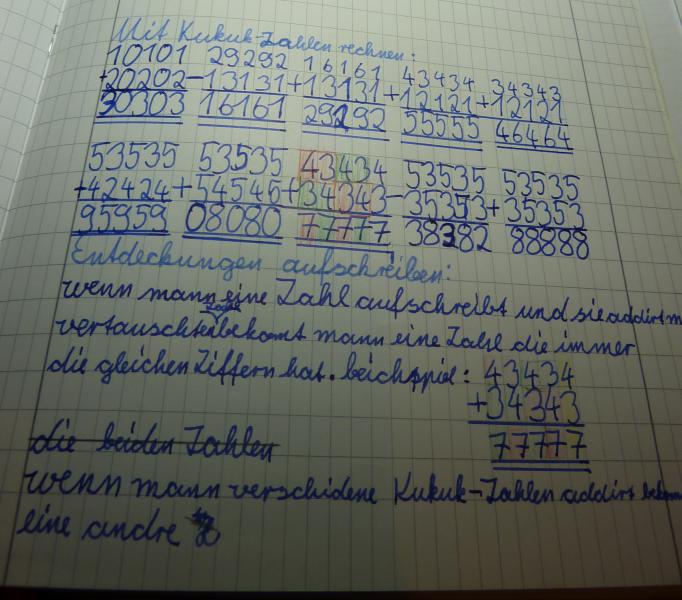 Mit Kukuk-Zahlen rechnen:
10101 29292 16161 43434 34343
+20202 -13131 +13131 +12121 +12121
30303 16161 29292 55555 46464
53535 53535 43434 53535 53535
+42424 +54545 +34343 -35353 +35353
95959 08080 77777 38382 88888
Entdeckungen aufschreiben:
wenn mann eine Zahl aufschreibt und sie addirt m
vertauschte
bekomt mann eine Zahl die immer
die gleichen Ziffern hat. beichspiel: 43434
+34343
77777
die beiden Zahlen
wenn mann verschidene Kukuk-Zahlen addirt bekom
eine andre